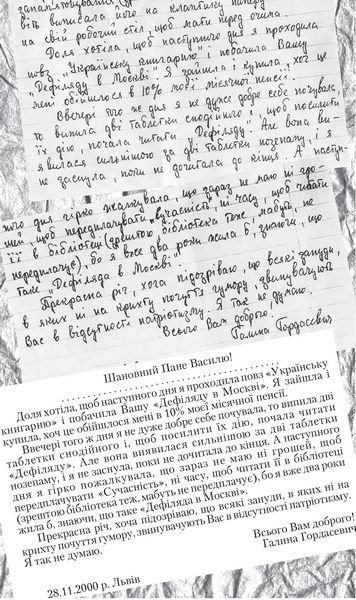 запам'ятовування,
віть виписала його на клаптику паперу
на свій робочий стіл, щоб мати перед очима.
Доля хотіла, щоб наступного дня я проходила
повз „Українську книгарню" і побачила Вашу
„Дефіляду в Москві". Я зайшла і купила, хоч це
мені обійшлося в 10% моєї місячної пенсії.
Ввечері того ж дня я не дуже добре себе почувала,
то випила дві таблетки снодійного і, щоб посилити
їх дію, почала читати „Дефіляду". Але вона ви-
явилася сильнішою за дві таблетки нозепаму, і я
не заснула, поки не дочитала до кінця. А наступ-
ного дня гірко жалкувала, що зараз не маю ні гро-
шей, щоб передплачувати „Сучасність", ні часу, щоб читати
її в бібліотеці (зрештою, бібліотека теж, мабуть, не
передплачує), бо я вже два роки жила б, знаючи, що
таке „Дефіляда в Москві".
Прекрасна річ, хоча підозріваю, що всякі зануди,
в яких ні на крихту почуття гумору, звинувачують
Вас в відсутності патріотизму. Я так не думаю.
Всього Вам доброго!
Галина Гордасевич
Шановний Пане Василю!
Доля хотіла, щоб наступного дня я проходила повз «Українську
книгарню» і побачила Вашу «Дефіляду в Москві». Я зайшла і
купила, хоч це обійшлося мені в 10% моєї місячної пенсії.
Ввечері того ж дня я не дуже добре себе почувала, то випила дві
таблетки снодійного і, щоб посилити їх дію, почала читати
«Дефіляду». Але вона виявилася сильнішою за дві таблетки
нозепаму, і я не заснула, поки не дочитала до кінця. А наступного
дня я гірко пожалкувала, що зараз не маю ні грошей, щоб
передплачувати «Сучасність», ні часу, щоб читати її в бібліотеці
(зрештою бібліотека теж, мабуть, не передплачує), бо я вже два роки
жила б, знаючи, що таке «Дефіляда в Москві».
Прекрасна річ, хоча підозріваю, що всякі зануди, в яких ні на
крихту почуття гумору, звинувачують Вас в відсутності патріотизму.
Я так не думаю.
Всього Вам доброго!
Галина Гордасевич
28.11.2000 р. Львів